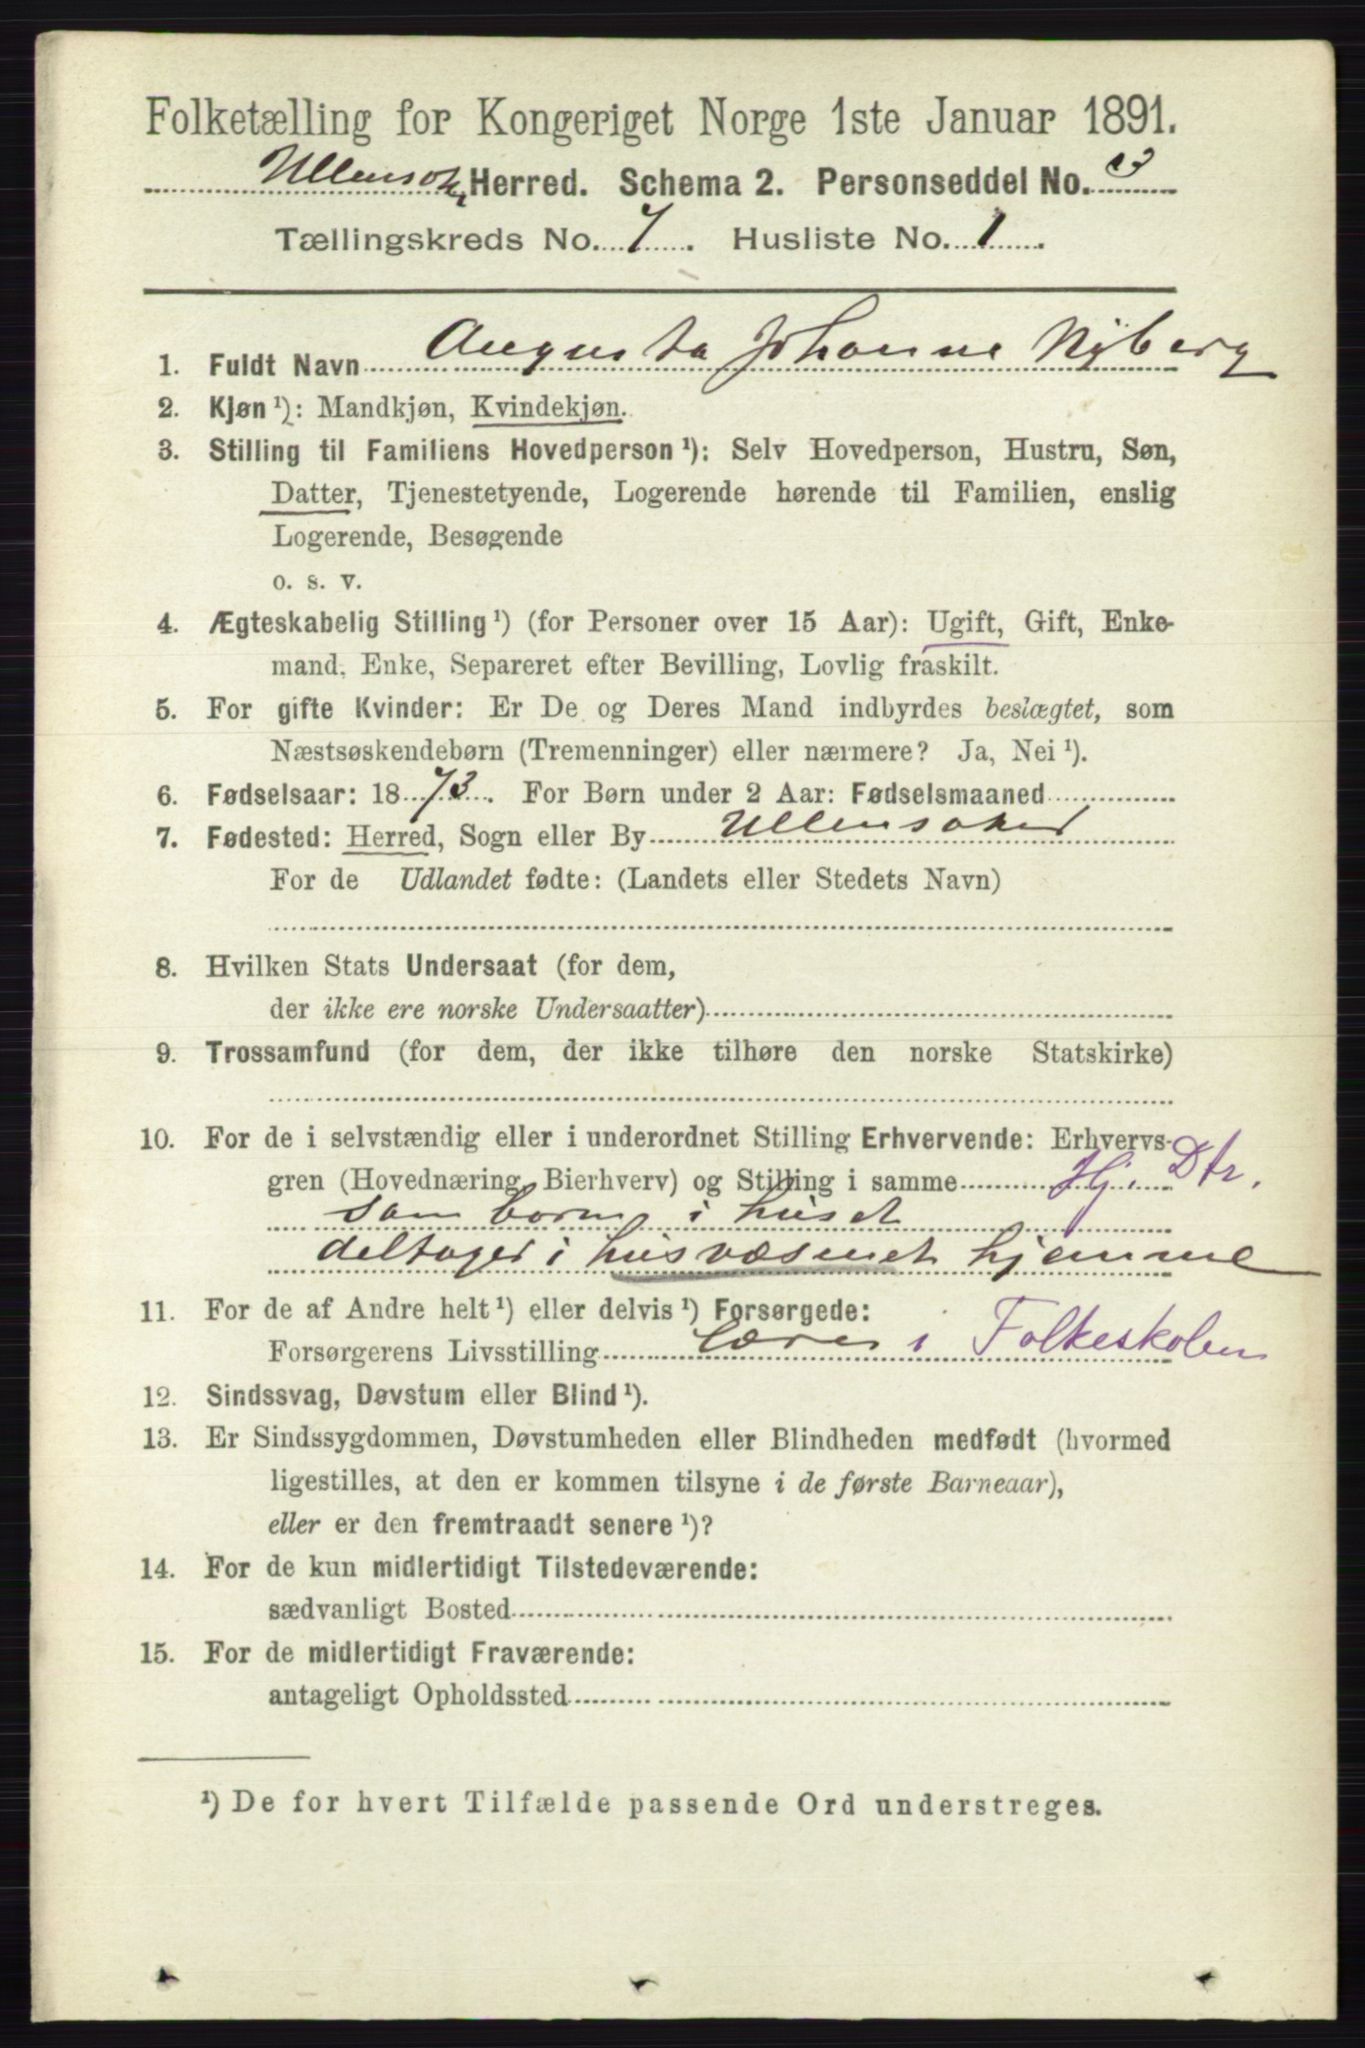 Folketælling for Kongeriget Norge 1ste Januar 1891.
Ullensak. Herred. Schema 2. Personseddel No. 3
Tællingskreds No. 7. Husliste No. 1.
1. Fuldt Navn Augusta Johanne Nyberg
2. Kjøn ¹): Mandkjøn, Kvindekjøn.
3. Stilling til Familiens Hovedperson ¹): Selv Hovedperson, Hustru, Søn,
Datter, Tjenestetyende, Logerende hørende til Familien, enslig
Logerende, Besøgende
o. s. v.
4. Ægteskabelig Stilling ¹) (for Personer over 15 Aar): Ugift, Gift, Enke-
mand, Enke, Separeret efter Bevilling, Lovlig fraskilt.
5. For gifte Kvinder: Er De og Deres Mand indbyrdes beslægtet, som
Næstsøskendebørn (Tremenninger) eller nærmere? Ja, Nei ¹).
6. Fødselsaar: 1873. For Børn under 2 Aar: Fødselsmaaned
7. Fødested: Herred, Sogn eller By Ullensaker
For de Udlandet fødte: (Landets eller Stedets Navn)
8. Hvilken Stats Undersaat (for dem,
der ikke ere norske Undersaatter)
9. Trossamfund (for dem, der ikke tilhøre den norske Statskirke)
10. For de i selvstændig eller i underordnet Stilling Erhvervende: Erhvervs-
gren (Hovednæring, Bierhverv) og Stilling i samme Hj. Dtr.
som barn i huset
deltager i husvæsenet hjemme
11. For de af Andre helt ¹) eller delvis ¹) Forsørgede:
Forsørgerens Livsstilling Lærer i Folkeskolen
12. Sindssvag, Døvstum eller Blind ¹).
13. Er Sindssygdommen, Døvstumheden eller Blindheden medfødt (hvormed
ligestilles, at den er kommen tilsyne i de første Barneaar),
eller er den fremtraadt senere ¹)?
14. For de kun midlertidigt Tilstedeværende:
sædvanligt Bosted
15. For de midlertidigt Fraværende:
antageligt Opholdssted
¹) De for hvert Tilfælde passende Ord understreges.